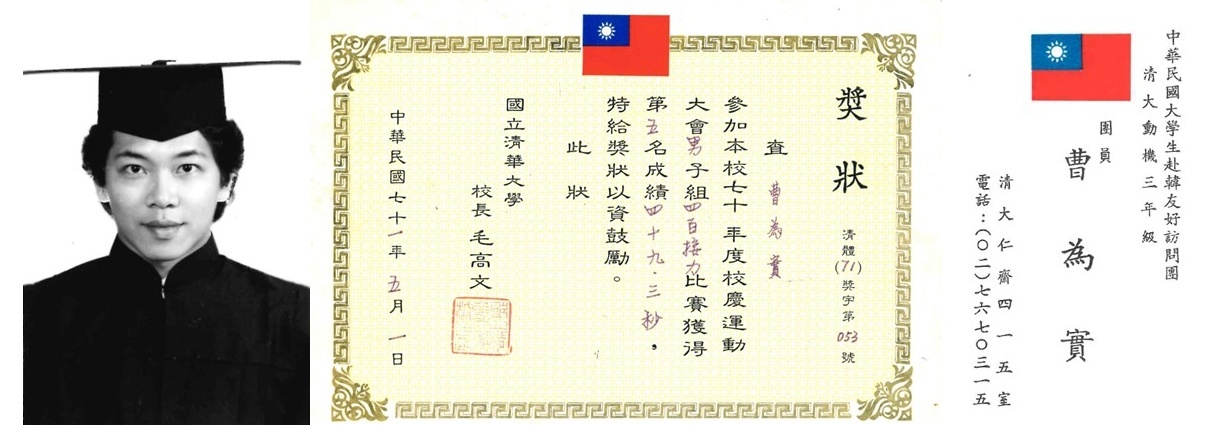 獎狀
清體(71)獎字第053號
查 曹為實
參加本校七十年度校慶運動
大會男子組四百接力比賽獲得
第五名成績四十九.三秒，
特給獎狀以資鼓勵。
此狀
國立清華大學
校長 毛高文
中華民國七十一年五月一日
中華民國大學生赴韓友好訪問團
清大動機三年級
團員
曹為實
清大仁齋四一五室
電話：(〇二)七六七〇三一五